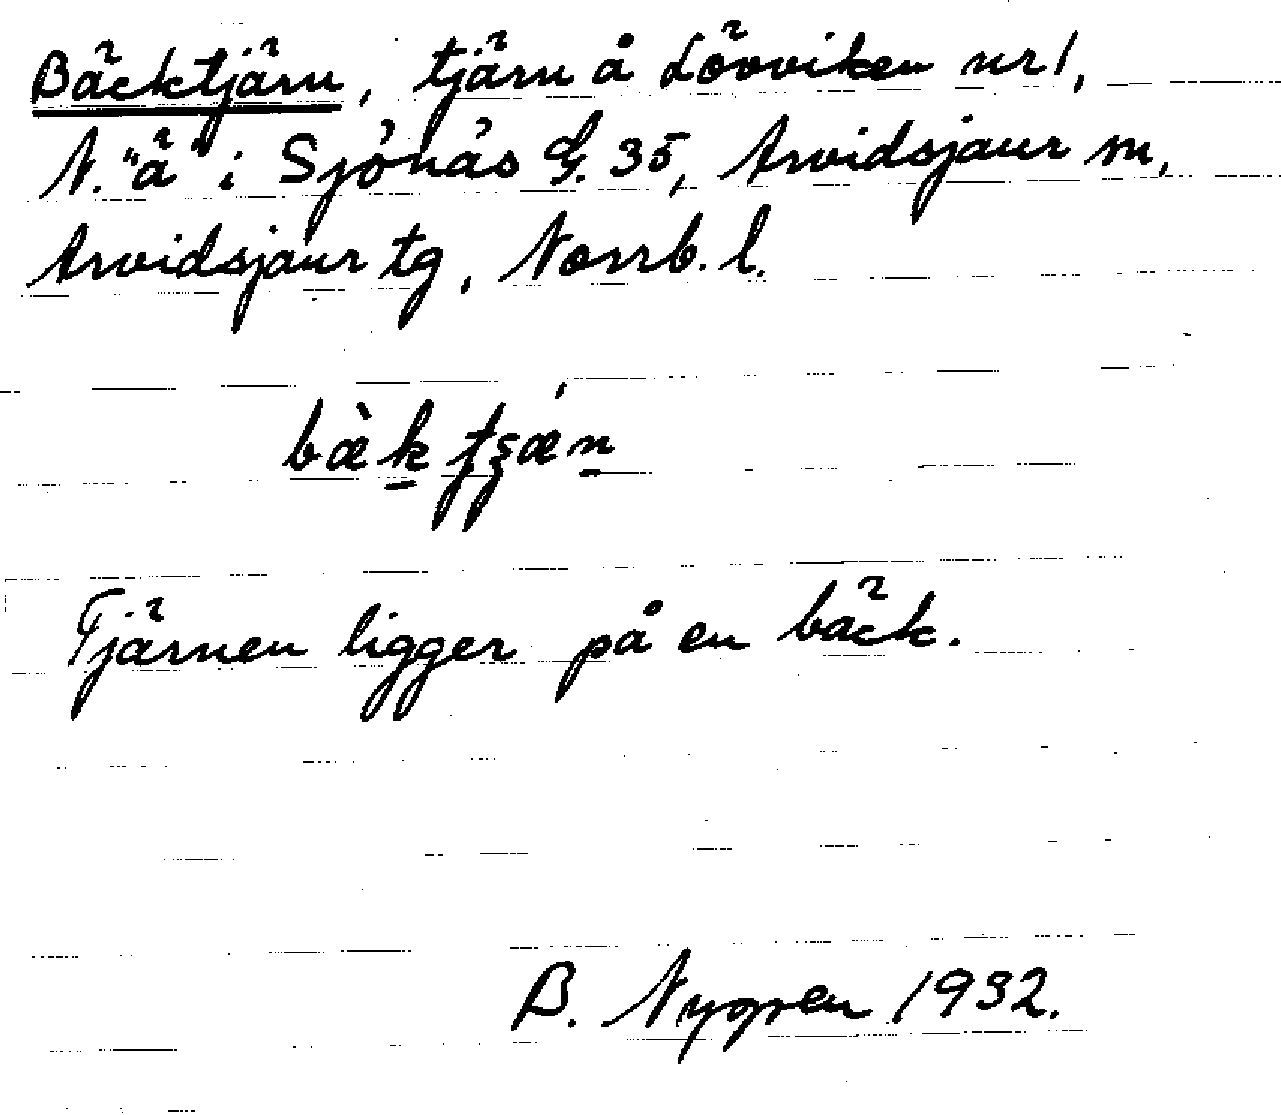 Bäcktjärn, tjärn å Lövviken nr 1,
N. "ä" i Sjönäs G. 35, Arvidsjaur sn,
Arvidsjaur tg, Norrb. l.
Tjärnen ligger på en bäck.
B. Nygren 1932.